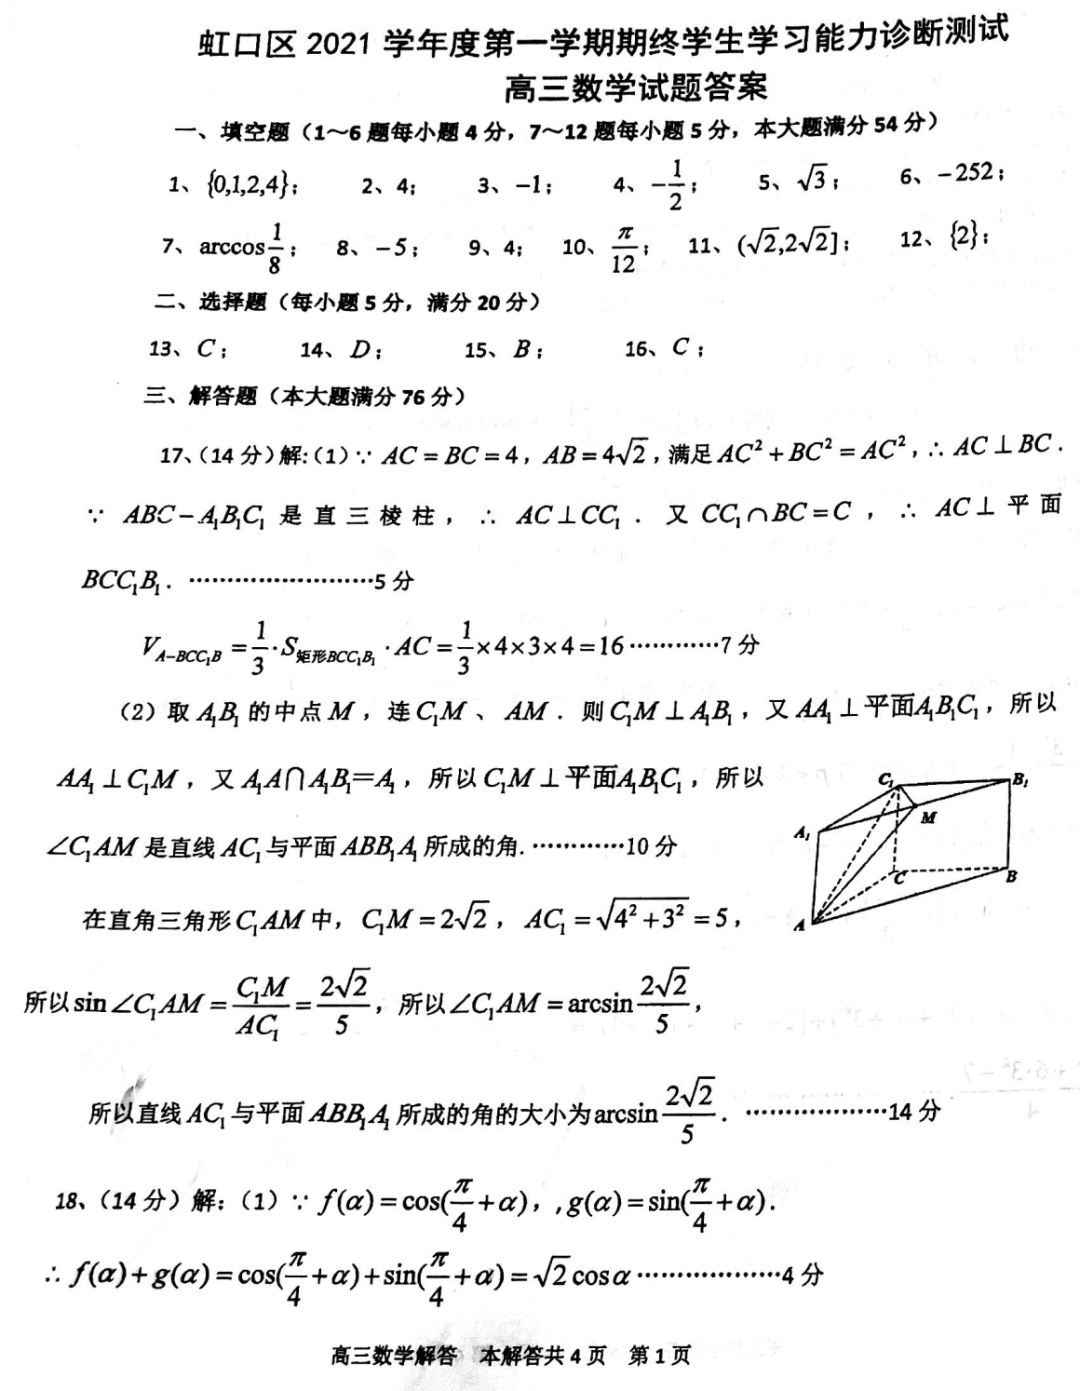 虹口区 2021 学年度第一学期期终学生学习能力诊断测试
高三数学试题答案
一、填空题（1～6 题每小题 4 分，7～12 题每小题 5 分，本大题满分 54 分）
1、{0,1,2,4}； 2、4； 3、−1； 4、−1/2； 5、√3； 6、−252；
7、arccos 1/8； 8、−5； 9、4； 10、π/12； 11、(√2,2√2]； 12、{2}；
二、选择题（每小题 5 分，满分 20 分）
13、C； 14、D； 15、B； 16、C；
三、解答题（本大题满分 76 分）
17、（14 分）解：（1）∵ AC = BC = 4，AB = 4√2，满足 AC² + BC² = AC²，∴ AC ⊥ BC．
∵ ABC − A₁B₁C₁ 是直三棱柱，∴ AC ⊥ CC₁．又 CC₁ ∩ BC = C，∴ AC ⊥ 平面
BCC₁B₁．………………………5 分
V_{A−BCC₁B} = 1/3 · S_{矩形BCC₁B₁} · AC = 1/3 × 4 × 3 × 4 = 16 …………7 分
（2）取 A₁B₁ 的中点 M，连 C₁M 、 AM．则 C₁M ⊥ A₁B₁，又 AA₁ ⊥ 平面A₁B₁C₁，所以
AA₁ ⊥ C₁M，又 A₁A ∩ A₁B₁ = A₁，所以 C₁M ⊥ 平面A₁B₁C₁，所以
∠C₁AM 是直线 AC₁ 与平面 ABB₁A₁ 所成的角. …………10 分
C₁
B₁
M
A₁
C
B
A
在直角三角形 C₁AM 中，C₁M = 2√2，AC₁ = √(4² + 3²) = 5，
所以 sin ∠C₁AM = C₁M/AC₁ = 2√2/5，所以 ∠C₁AM = arcsin 2√2/5，
所以直线 AC₁ 与平面 ABB₁A₁ 所成的角的大小为 arcsin 2√2/5．………………14 分
18、（14 分）解：（1）∵ f(α) = cos(π/4 + α)，, g(α) = sin(π/4 + α).
∴ f(α) + g(α) = cos(π/4 + α) + sin(π/4 + α) = √2 cos α ………………4 分
高三数学解答 本解答共 4 页 第 1 页